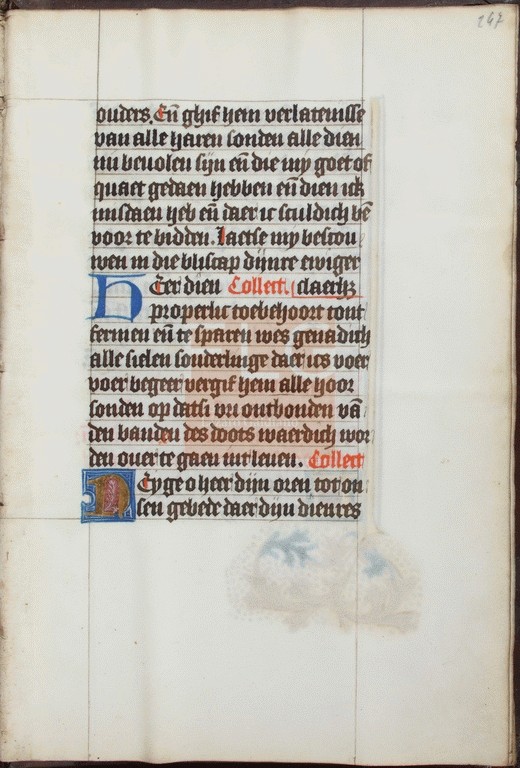 247
ouders. Eñ ghif hem verlatenisse
van alle haren sonden alle dien
mi beuolen sijn eñ die my goet of
quaet gedaen hebben eñ dien ick
misdaen heb eñ daer ic sculdich bē
voor te bidden. Laetse my bescou
wen in die bliscap dijnre ewiger
HEer dien Collect. claerh&
properlic toebehoort tont
fermen eñ te sparen wes genadich
alle sielen sonderlinge daer ics voer
voer begeer vergif hem alle hoor
sonden op datsi vri onthouden vā
den banden des doots waerdich wor
den ouer te gaen int leuen. Collect
NEyge o heer dijn oren tot on
sen gebede daer dijn dienres